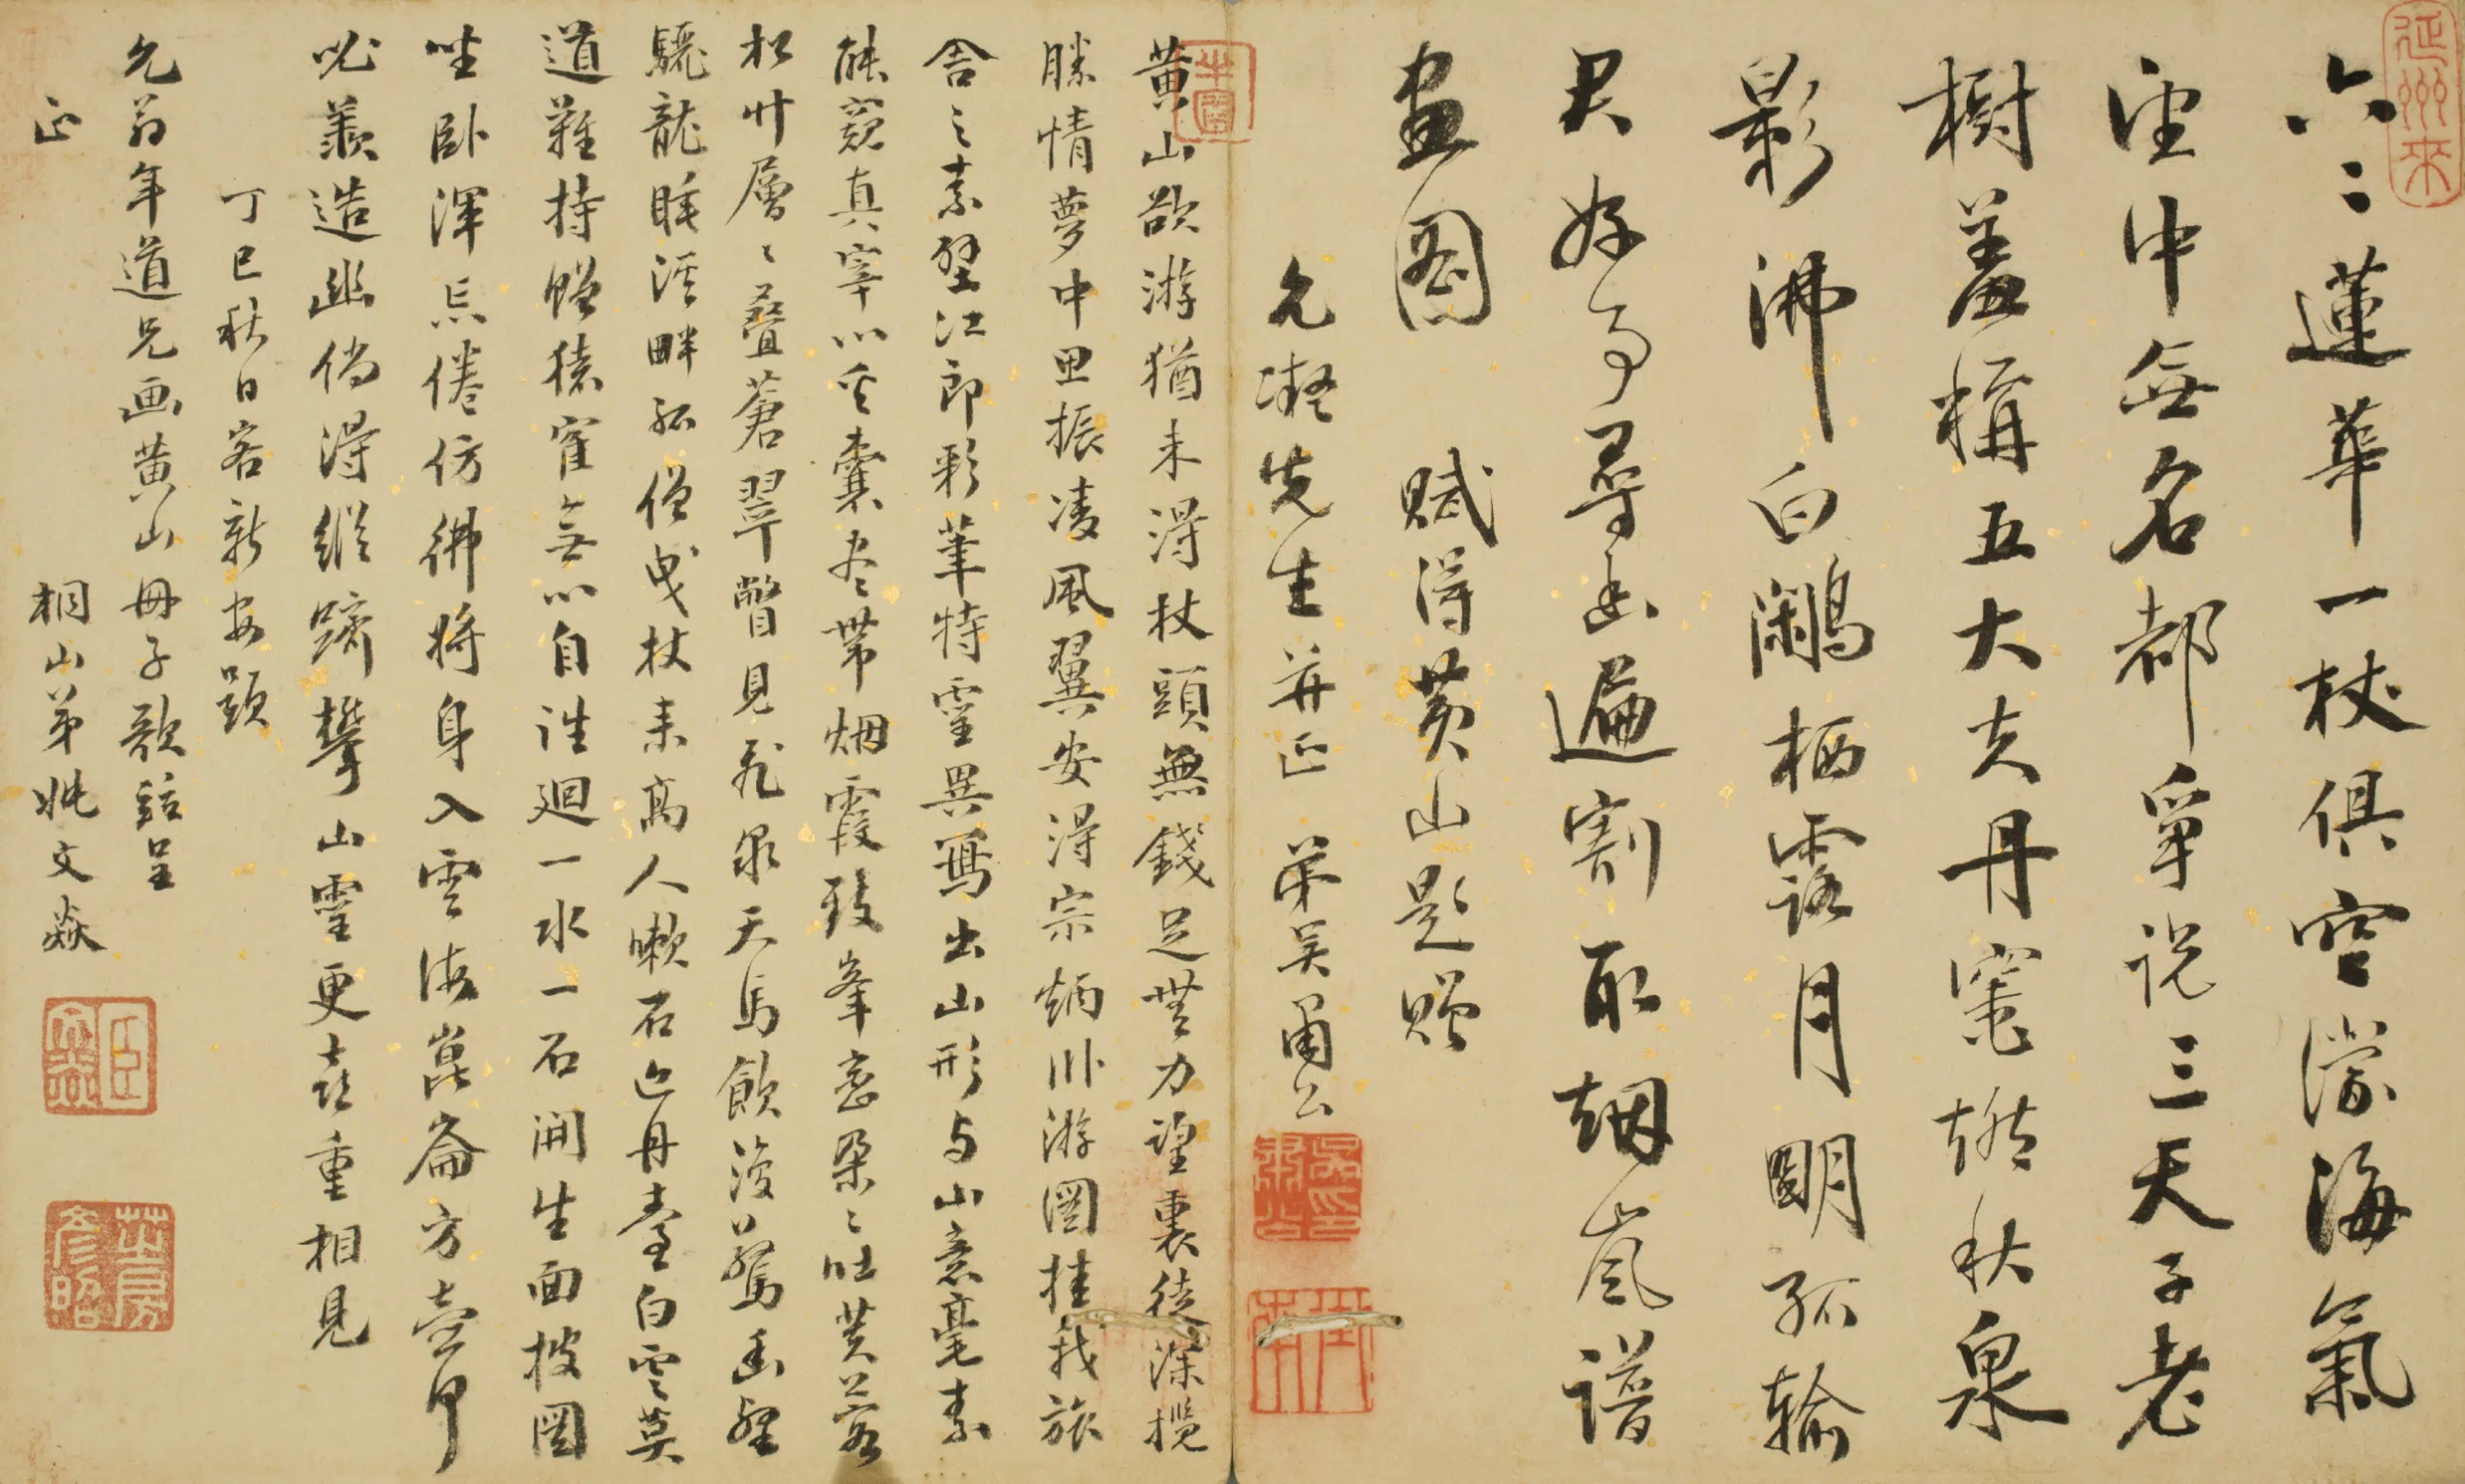 六〻蓮華一杖俱空濛海氣
望中無名都爭說三天子老
樹羞稱五大夫丹竈煙秋泉
影沸白鷴栖露月明孤輸
君好事尋幽遍割取烟嵐譜
畫圖
賦得黄山題贈
允凝先生并正 弟吳甫公
黄山欲游猶未得杖頭無錢足無力望裏徒深攬
勝情夢中思振凌風翼安得宗炳卧游圖挂我旅
舍之素壁江郎彩筆特靈異寫出山形与山意毫素
能窺真宰心奚囊尽帶烟霞致峯巒朶〻吐芙蓉
松竹層〻叠蒼翠瞥見飛泉天馬飲復驚幽壑
驪龍睡溪畔孤僧曳杖来高人嗽石近丹臺白雲莫
道難持贈猿寉無心自往迴一水一石開生面披圖
坐卧渾忘倦仿彿將身入雲海崑崙方壺即
此羨造幽倘得縱躋攀山靈更喜重相見
丁巳秋日客新安題
允翁年道兄画黄山册子歌鈺呈
正
桐山弟姚文焱